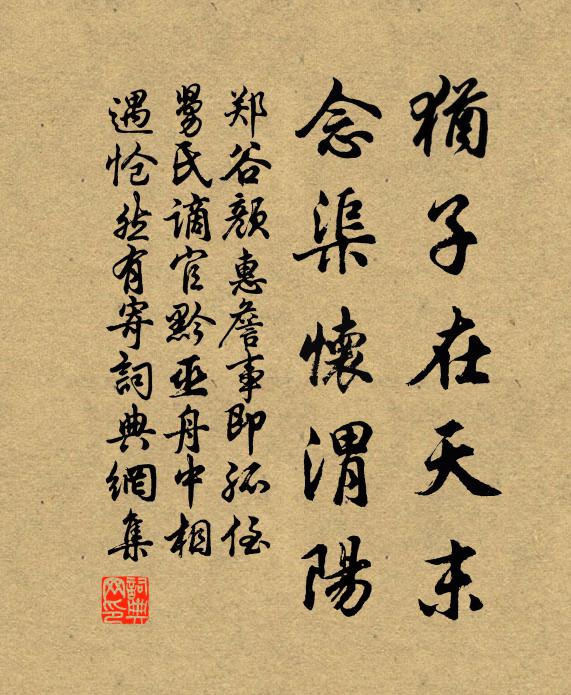 猶子在天末
念渠懷渭陽
郑谷顏惠詹事即孤侄
舅氏謫官黔巫舟中相
遇愴然有寄詞典網集
詞典网印